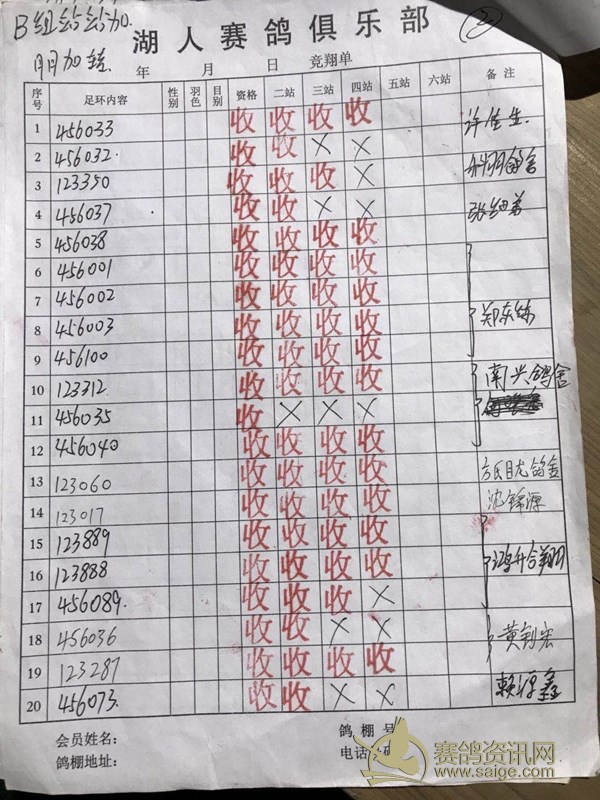 B组
②
湖人赛鸽俱乐部
年 月 日 竞翔单
序号 足环内容 性别 羽色 目别 资格 二站 三站 四站 五站 六站 备注
1 456033 收 收 收 收
2 456032. 收 收 × ×
3 123350 收 收 收 ×
4 456037 收 收 × ×
5 456038 收 收 收 收
6 456001 收 收 收 收
7 456002 收 收 收 收
8 456003 收 收 收 收 郑东练
9 456100 收 收 收 收
10 123312 收 收 收 收 南兴鸽舍
11 456035 收 × × ×
12 456040 收 收 收 收
13 123060 收 收 收 收
14 123017 收 收 收 收 沈锦源
15 123889 收 收 收 收
16 123888 收 收 收 收
17 456089. 收 收 收 ×
18 456036 收 收 × × 黄钊宏
19 123287 收 收 收 收
20 456073. 收 收 × ×
会员姓名: 鸽棚号
鸽棚地址: 电话
赛鸽资讯网
www.saige.com